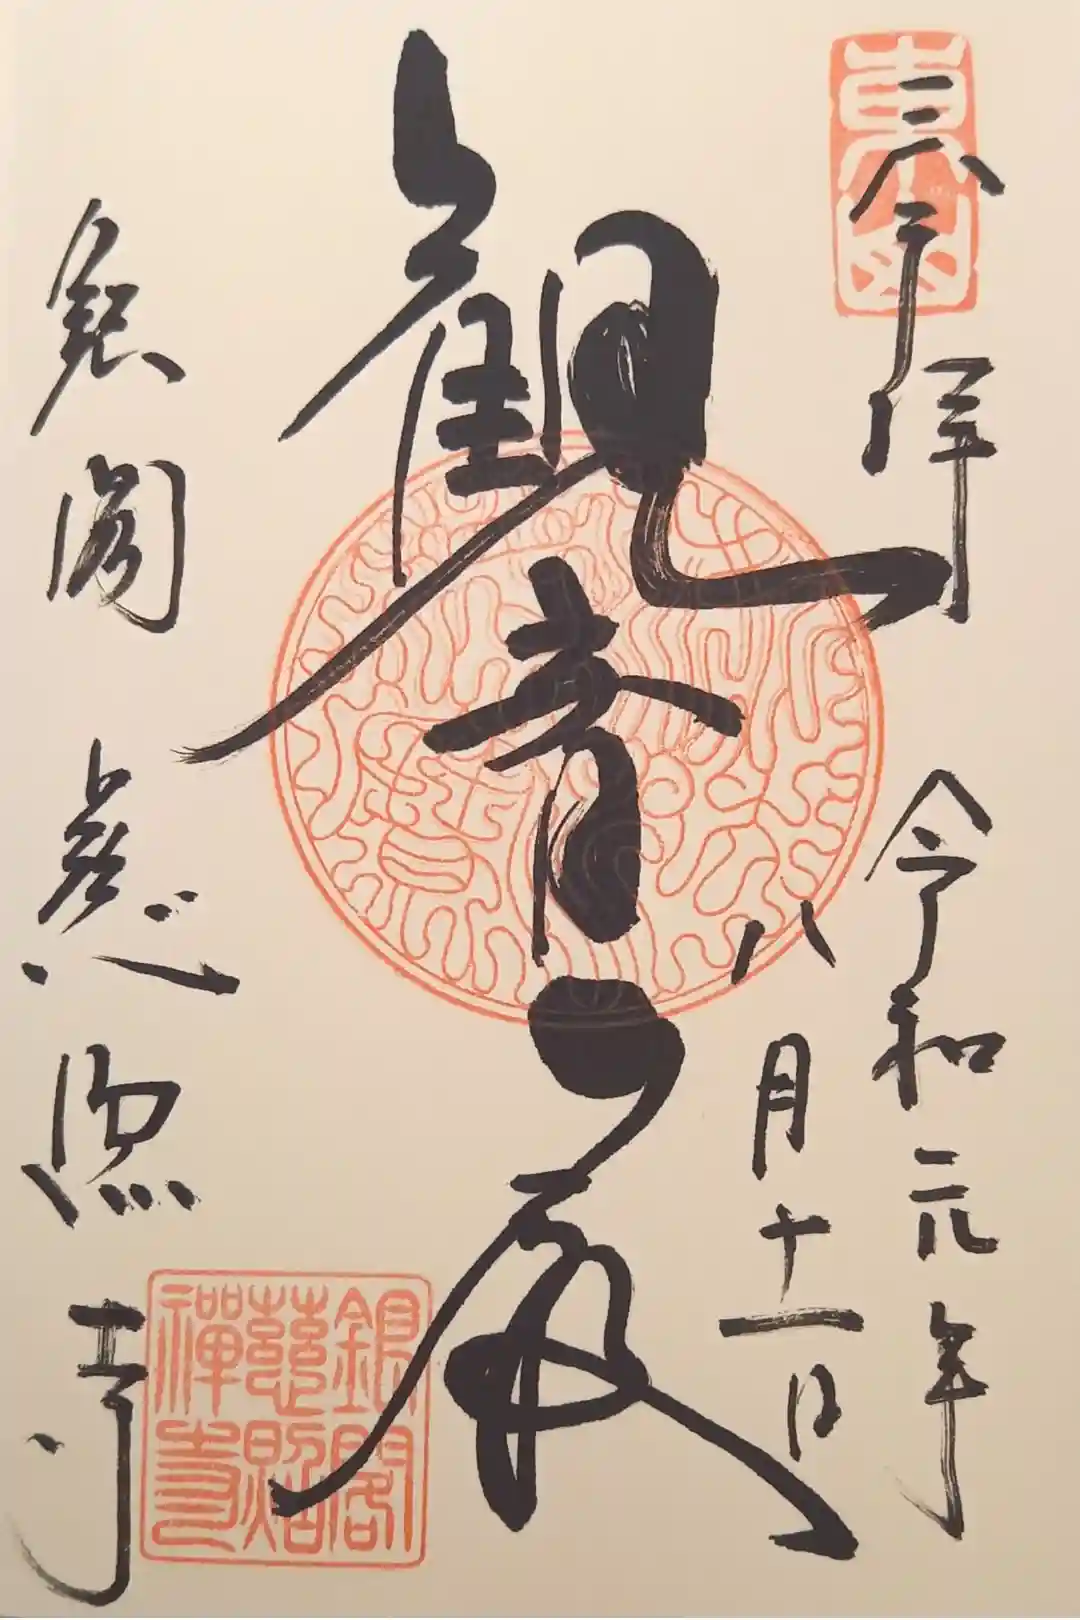 奉拝
令和元年
八月十一日
観音殿
銀閣 慈照寺
東山
銀閣
慈照
禅寺